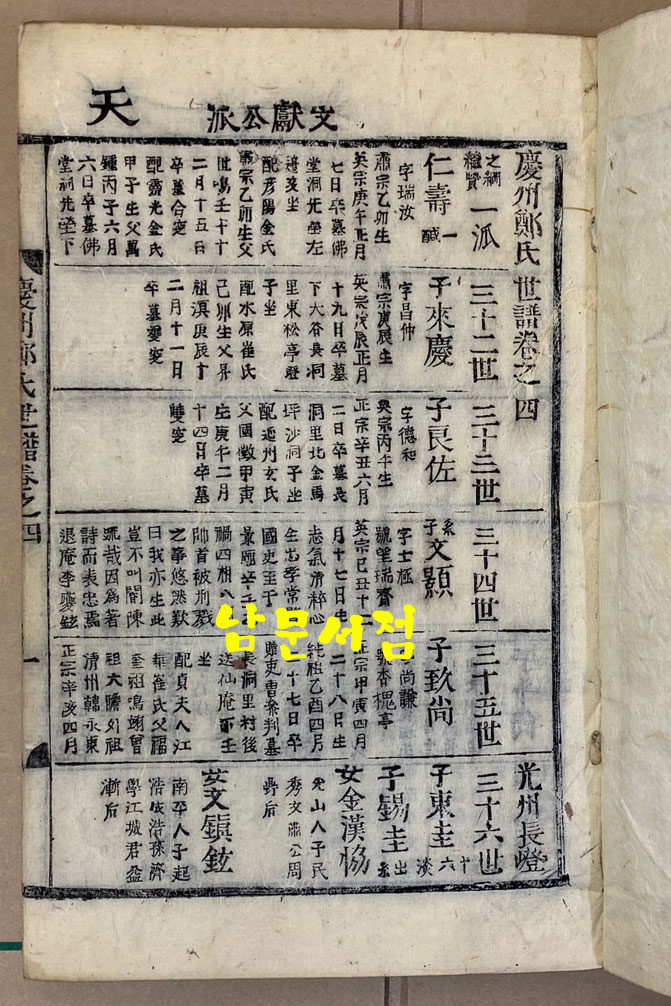 天
文獻公派
慶州鄭氏世譜卷之四
光州長燈
之綱
一派
三十二世
三十三世
三十四世
三十五世
三十六世
仁壽
一
字瑞汝
肅宗乙卯生
英宗庚午正月
七日卒墓佛
堂洞先塋左
配彦陽金氏
肅宗乙卯生父
世鳴壬十
二月十五日
卒墓合窆
配靈光金氏
甲子生父萬
鍾丙子六月
六日卒墓佛
堂祠先塋下
子來慶
字昌仲
肅宗庚辰生
英宗戊辰正月
十九日卒墓
下大谷長洞
里東松亭嶝
子坐
配水原崔氏
己卯生父昇
祖淇庚辰十
二月十一日
卒墓雙窆
子良佐
字德和
英宗丙午生
正宗辛丑六月
二日卒墓長
洞里北金馬
坪沙洞子坐
配延州玄氏
父國徵甲寅
生庚午二月
十四日卒墓
雙窆
系子
文顯
號瑩瑞齋
英宗己丑十二
月十七日生
志氣清粹心
國史至于
禍四相八
帥首被刑戮
之事悠然歎
曰我亦生此
豈不叫閽陳
疏哉因爲著
詩而表忠焉
退庵李夔鉉
子致尚
字尚謙
號杏槐亭
正宗甲寅四月
二十八日生
純祖乙酉四月
十七日卒
贈吏曹參判墓
長洞里村後
送仙庵下壬
坐
配貞夫人江
華崔氏父福
奎祖鴻翊曾
祖大瞻外祖
清州韓永東
正宗辛亥四月
子東圭
十六
淡
子錫圭
出系
女金漢協
光山人子民
秀文肅公周
壽后
女文鎭鉉
南平人子起
浩成浩孫濟
學江城君益
漸后
慶州鄭氏世譜卷之四
一
남문서점